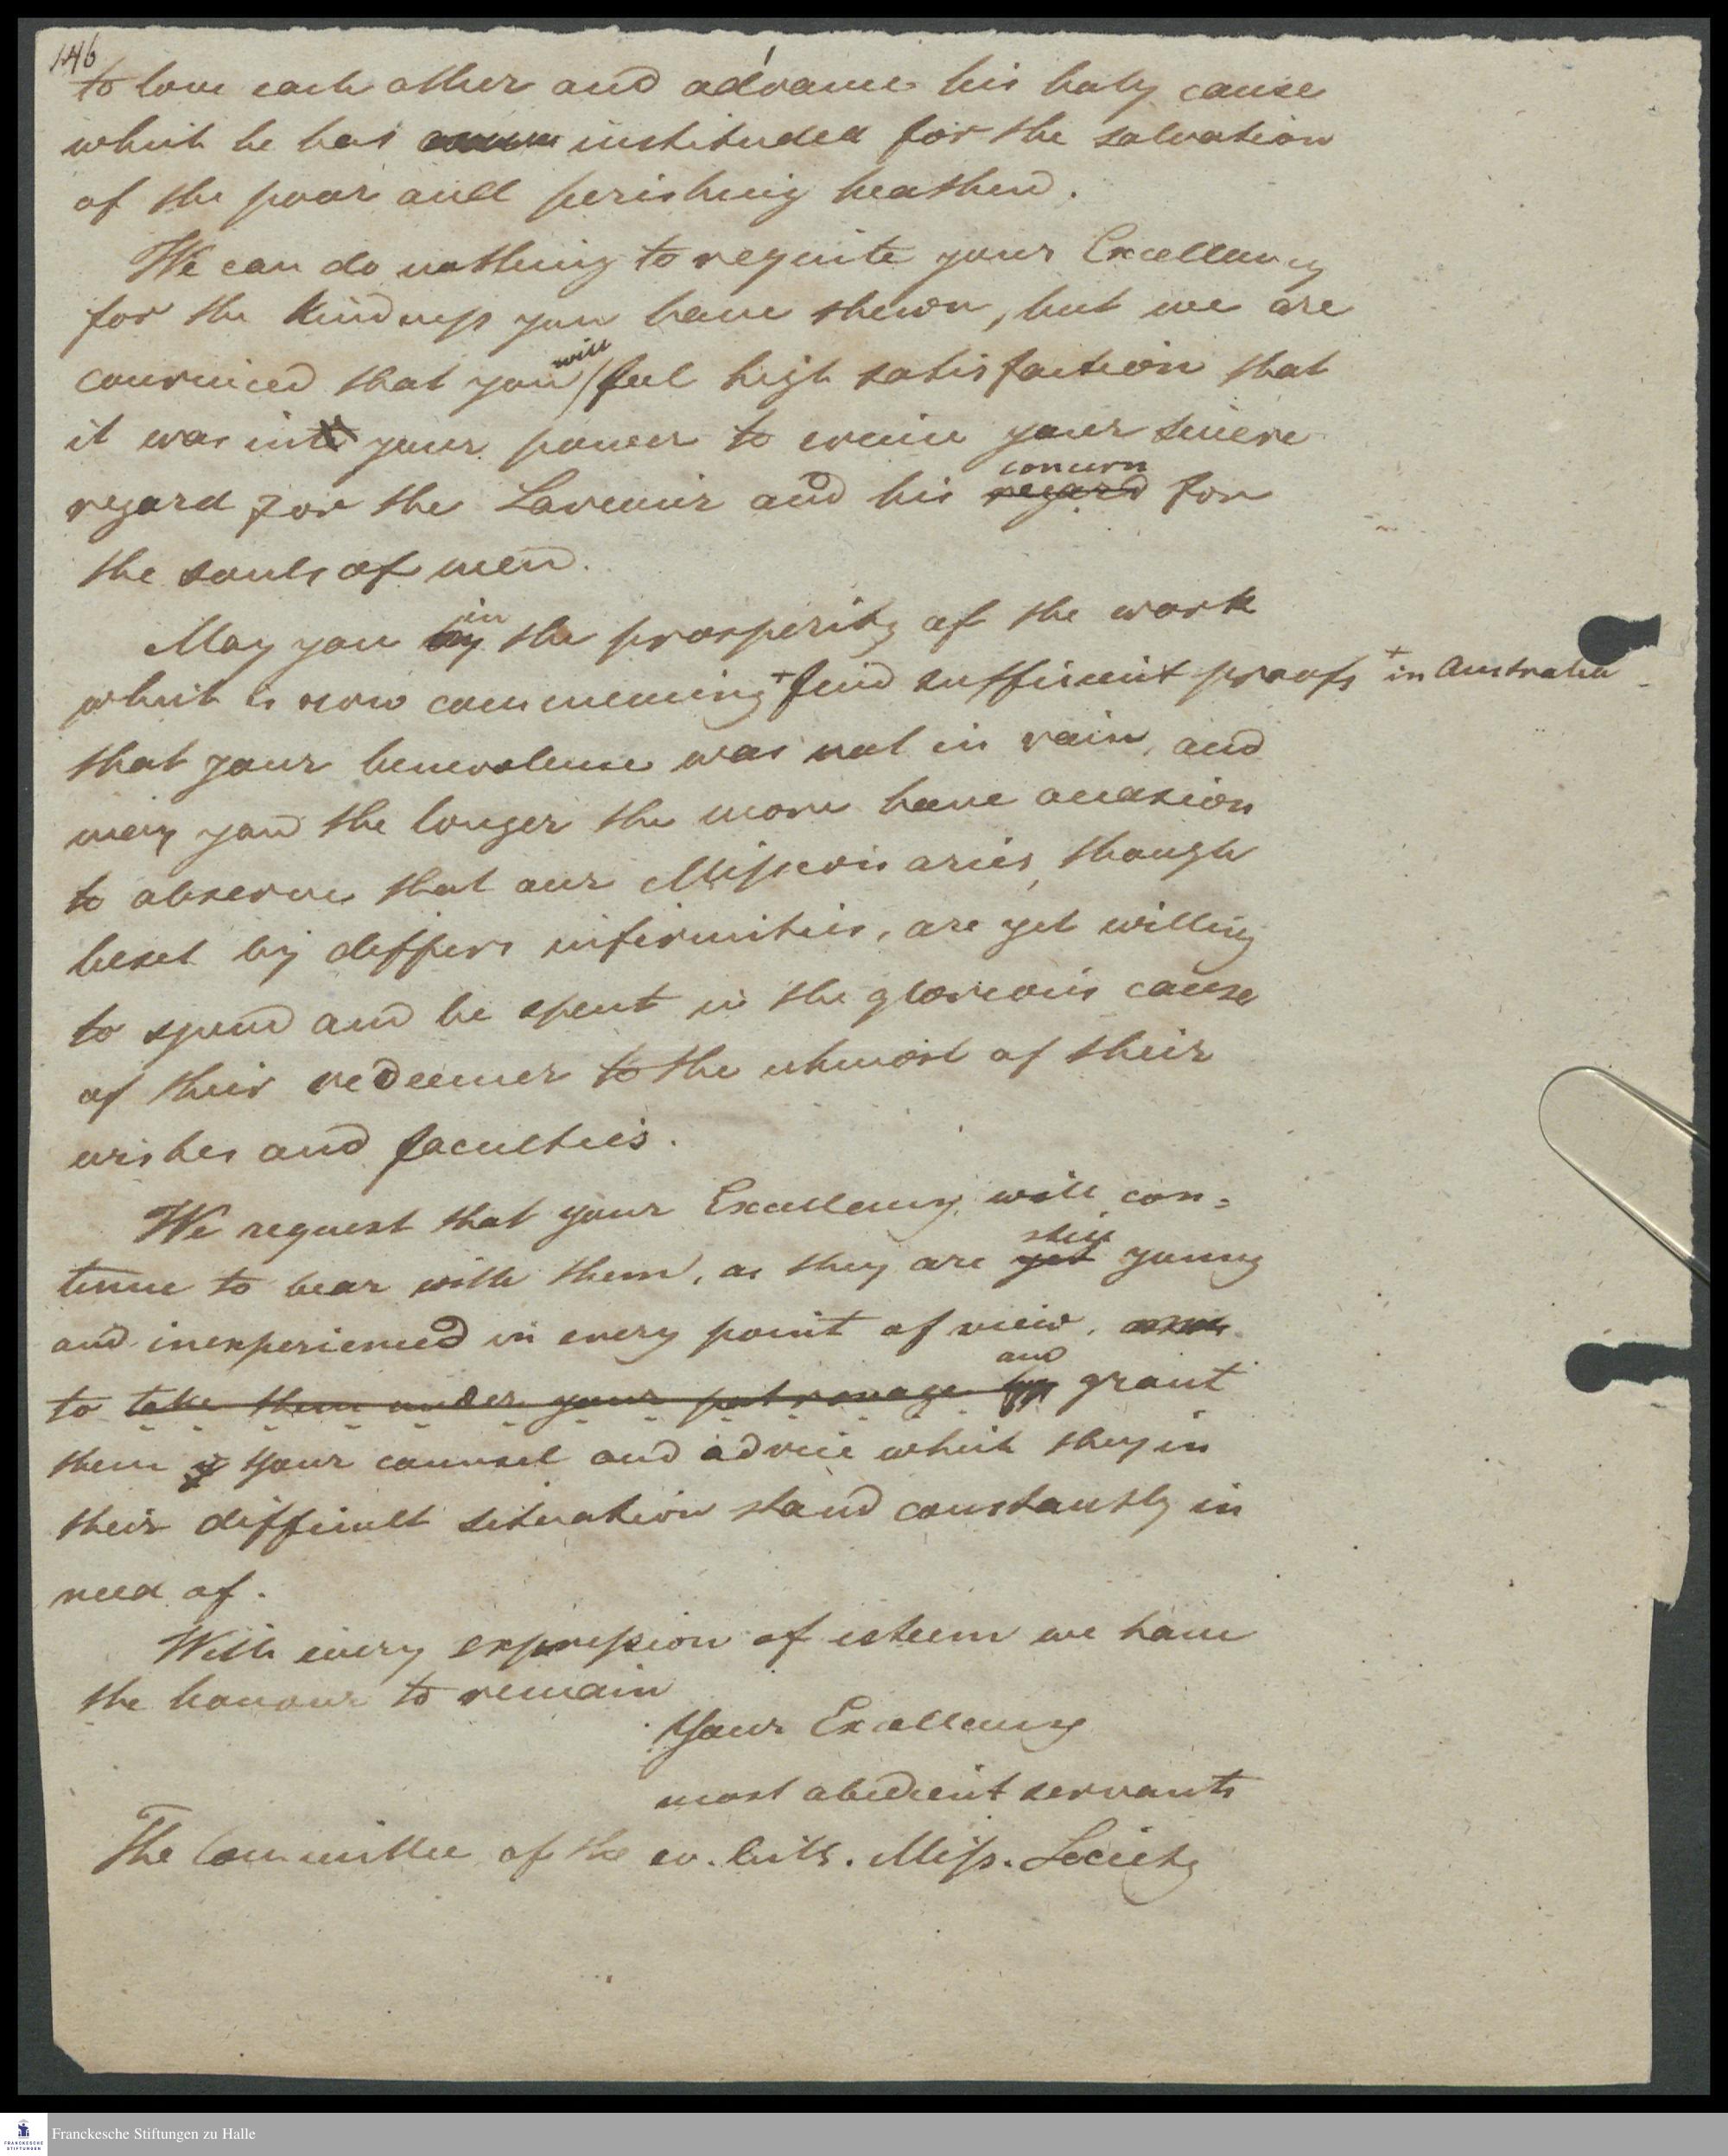 146
to love each other and advance his holy cause
which he has instituded for the salvation
of the poor and perishing heathen.
We can do nothing to requite your Excellency
for the kindness you have shewn, but we are
convinced that you will feel high satisfaction that
it was in your power to evince your sincere
regard for the Saviour and his regard concern for
the souls of men.
May you by in the prosperity of the work
which is now commencing + find sufficient proofs + in Australia
that your benevolence was not in vain, and
may you the longer the more have occasion
to observe that our Missionaries, though
beset by infirmities, are yet willing
to spend and be spent in the glorious cause
of their redeemer to the utmost of their
wishes and faculties.
We request that your Excellency will con=
tinue to bear with them, as they are yet still young
and inexperienced in every point of view.
to take them under your patronage by and grant
them your counsel and advice which they in
their difficult situation stand constantly in
need of.
With every expression of esteem we have
the honour to remain
Your Excellency
most obedient servants
The Committee of the ev. luth. Miss. Society
Franckesche Stiftungen zu Halle
FRANCKESCHE
STIFTUNGEN